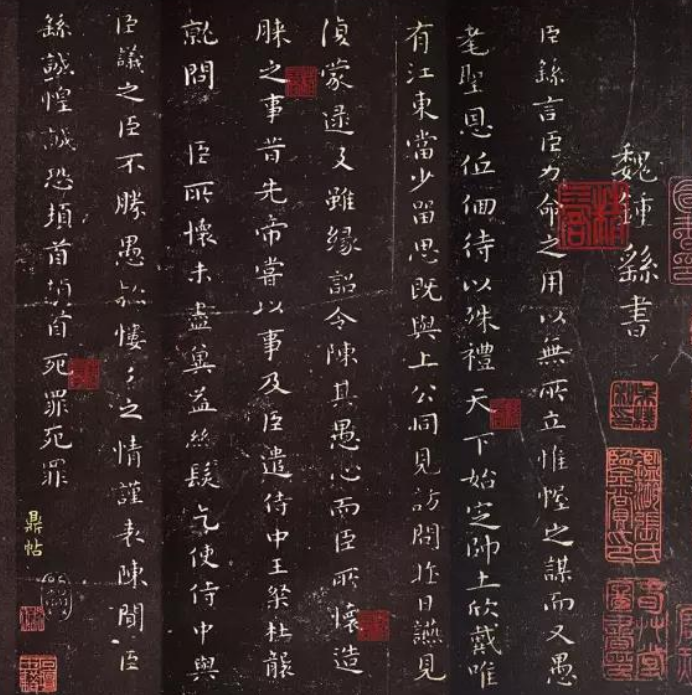 魏鍾繇書
臣繇言臣力命之用以無所立惟幄之謀而又愚
耄聖恩低佪待以殊禮天下始定帥土欣戴唯
有江東當少留思既與上公同見訪問昨日讌見
偵蒙逮及雖緣詔令陳其愚心而臣所懷造
膝之事昔先帝嘗以事及臣遣侍中王粲杜襲
就問臣所懷未盡冀益絲髮乞使侍中與
臣議之臣不勝愚款慺々之情謹表陳聞臣
繇誠惶誠恐頓首頓首死罪死罪
鼎帖